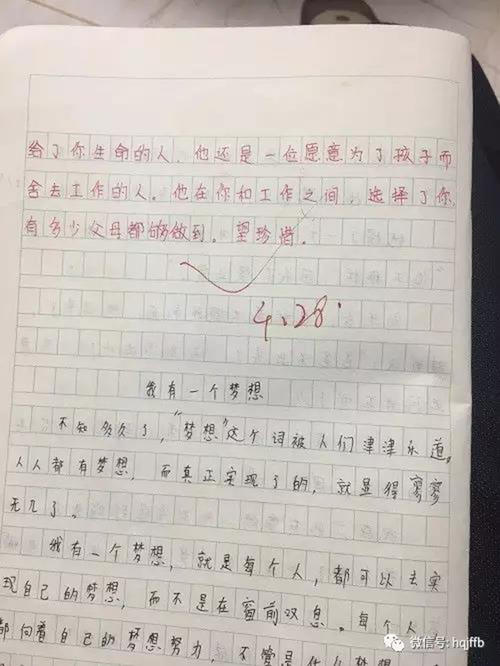 给了你生命的人，他还是一位愿意为了孩子而
舍去工作的人。他在你和工作之间，选择了你，
有多少父母都够做到。望珍惜。
4.28.
我有一个梦想
不知多久了，“梦想”这个词被人们津津永道。
人人都有梦想，而真正实现了的，就显得寥寥
无几了。
我有一个梦想，就是每个人，都可以去实
现自己的梦想，而不是在窗前叹息。每个人
都向着自己的梦想努力，不管是什么梦想
微信号: hqjffb